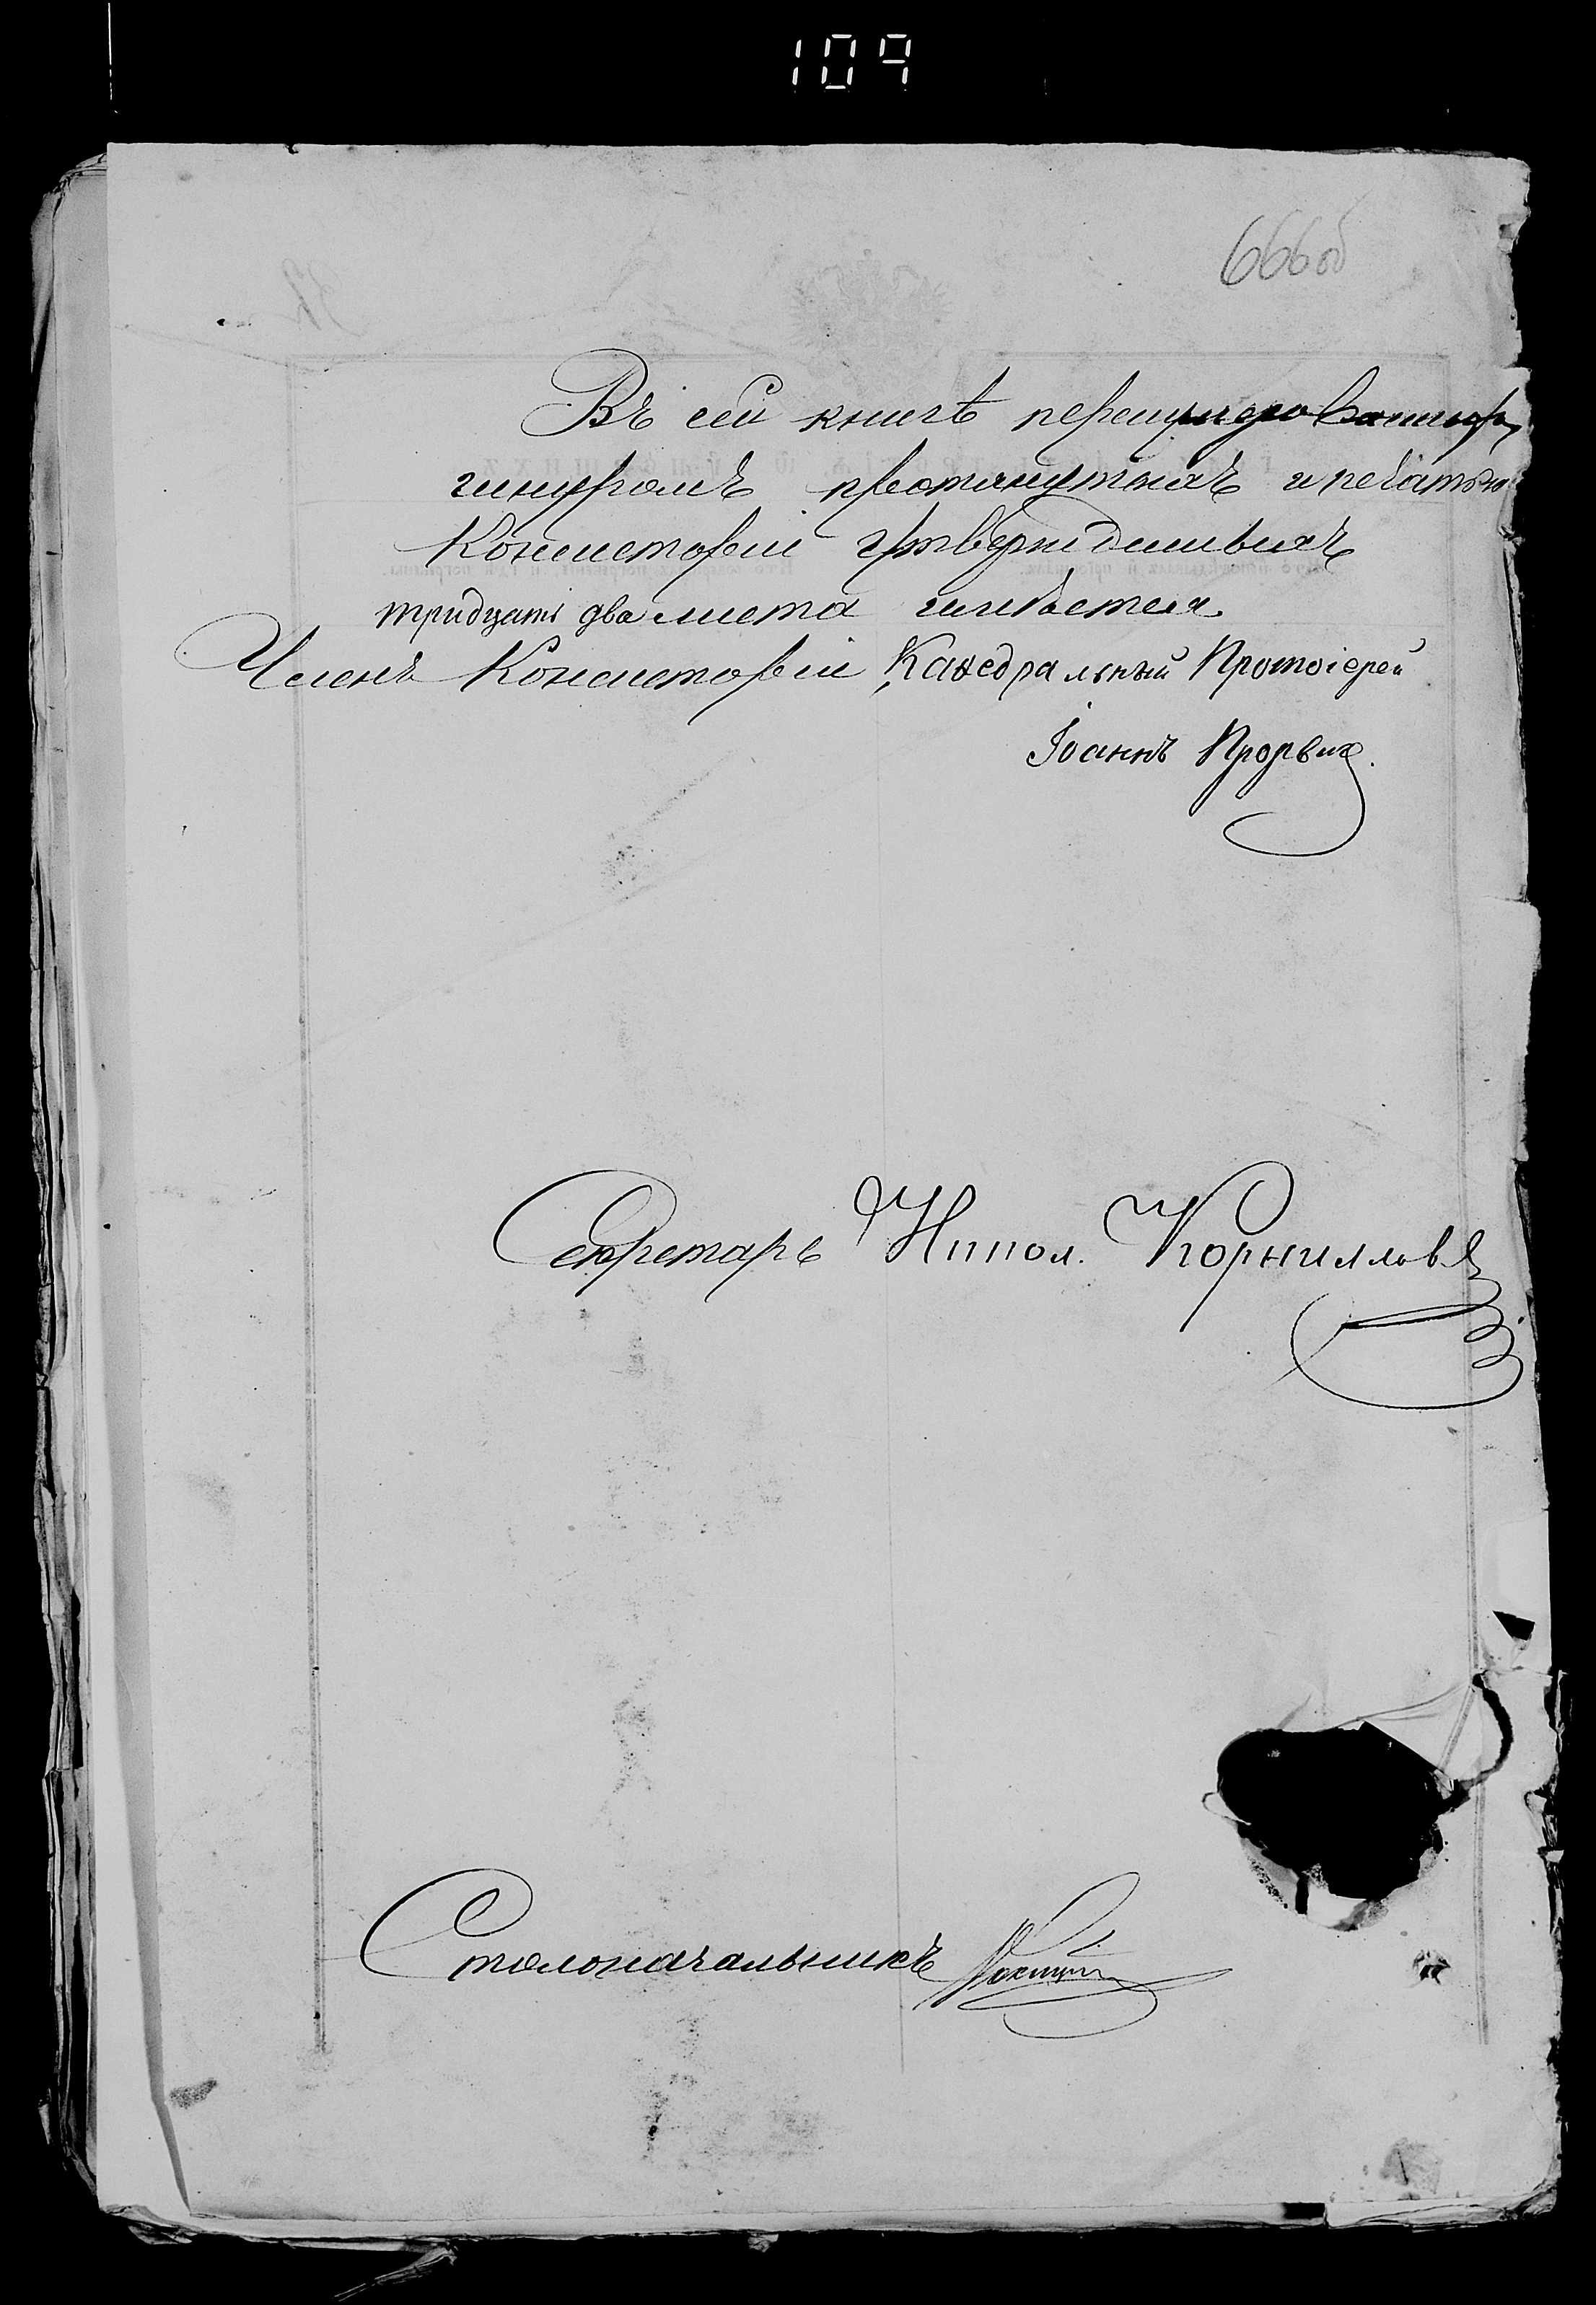 109
666об
Въ сей книгѣ перенумерованныхъ,
шнуромъ прошнутныхъ и печатью
Консисторіи утвержденныхъ
тридцать два листа имѣется.
Членъ Консисторіи Каѳедральный Протоіерей
Іоаннъ
Секретарь Никол. Корнилловъ
Столоначальникъ